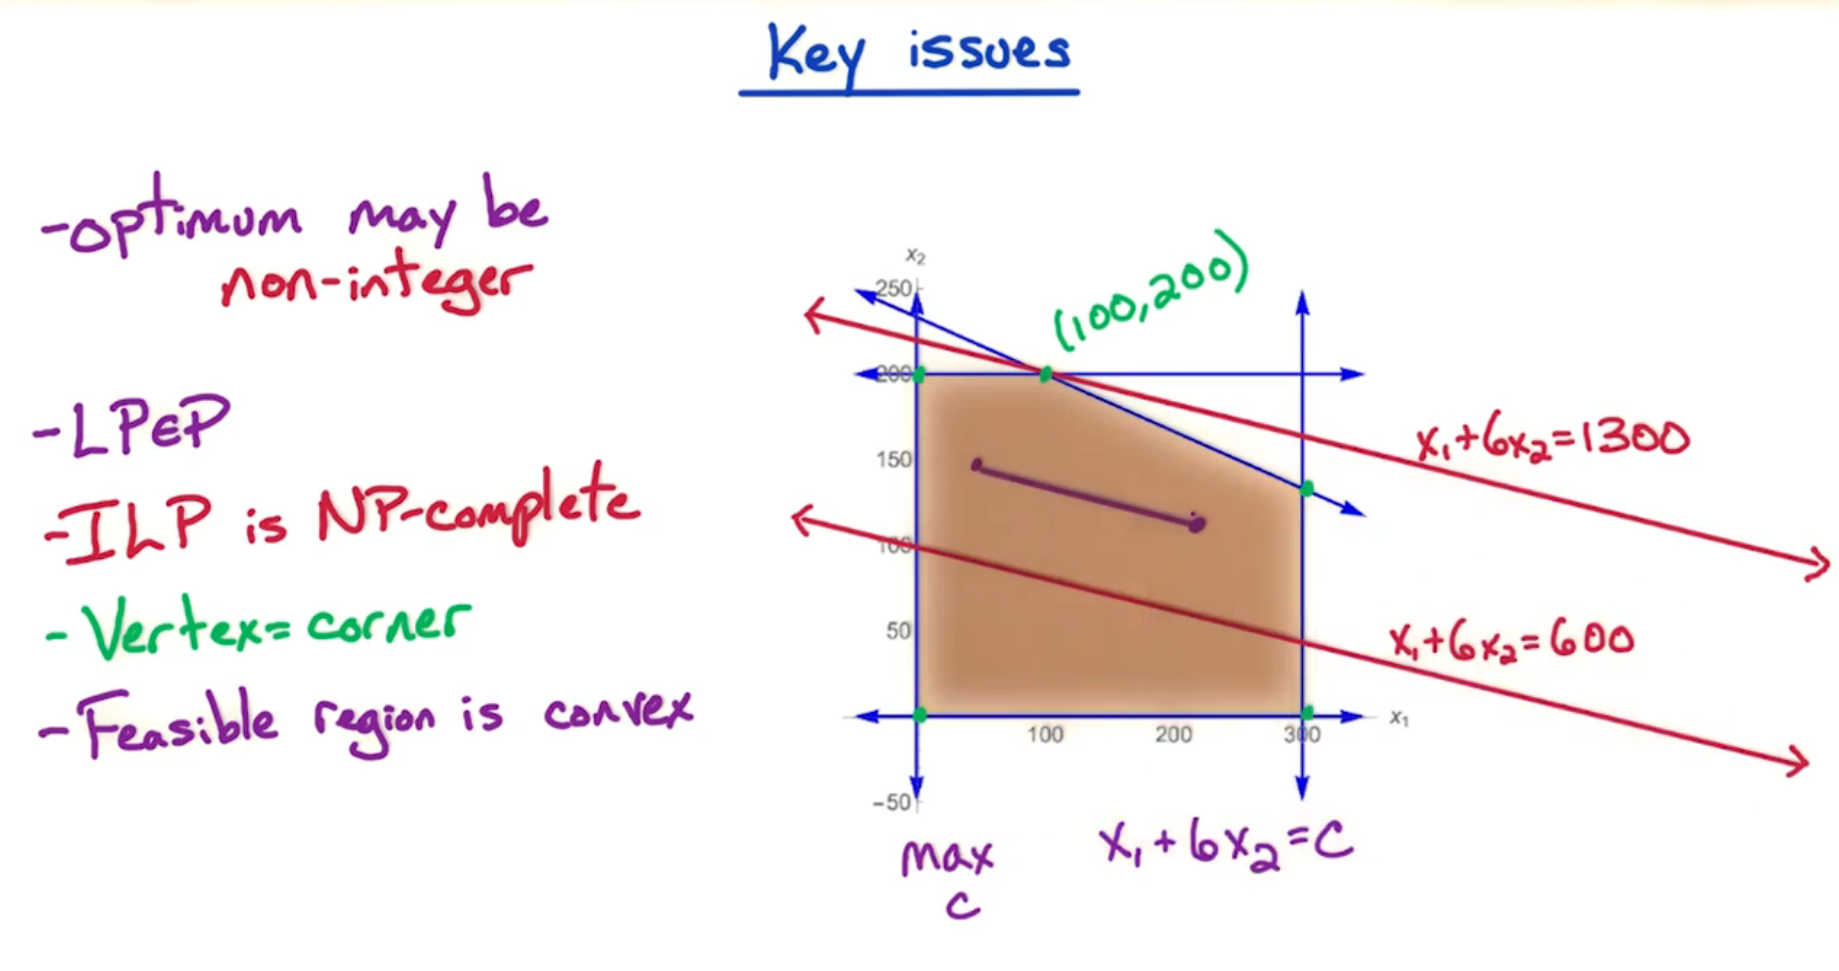 Key issues
-optimum may be
non-integer
-LP∈P
-ILP is NP-complete
- Vertex=corner
-Feasible region is convex
x₂
250
(100,200)
200
x₁+6x₂=1300
150
100
x₁+6x₂=600
50
x₁
100 200 300
-50
max x₁+6x₂=C
c